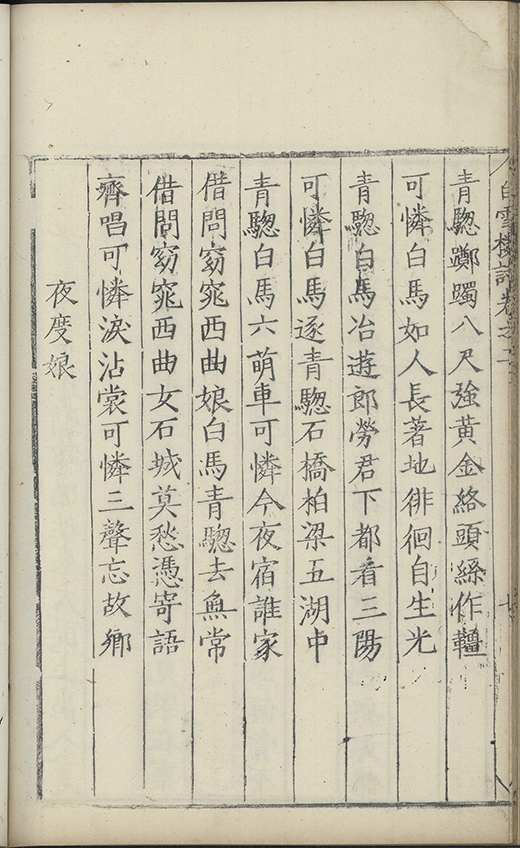 白雪樓詩卷之二
青驄躑躅八尺強黃金絡頭絲作韁
可憐白馬如人長著地徘徊自生光
青驄白馬冶遊郎勞君下都看三陽
可憐白馬逐青驄石橋柏梁五湖中
青驄白馬六萌車可憐今夜宿誰家
借問窈窕西曲娘白馬青驄去無常
借問窈窕西曲女石城莫愁憑寄語
齊唱可憐淚沾裳可憐三聲忘故鄉
夜度娘